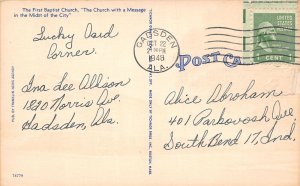 The First Baptist Church, "The Church with a Message
in the Midst of the City"
Lucky Card
Corner.
Ina Lee Allison
1890 Norris Ave.
Gadsden, Ala.
74779
GADSDEN
OCT 22
PM
1948
ALA.
POST CA
UNITED STATES
CENT
Alice Abraham
401 Parkovash Ave
South Bend 17, Ind.